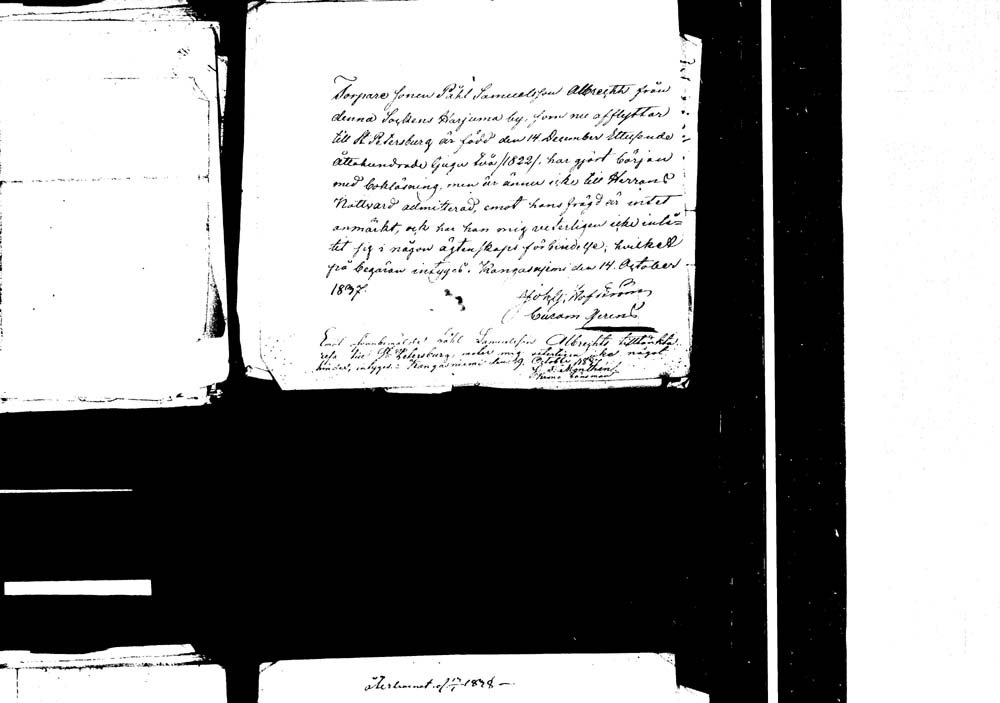 Torpare sonen Påhl Samuelsson Albrecht från
denna Sockens Harjuma by, som nu afflyttar
till St Petersburg är född den 14 December Ettusende
åttahundrade tjugu två /1822/, har gjort början
med bokläsning, men är ännu icke till Herrans
Nattvard admitterad, emot hans frägd är intet
anmärkt, och har han mig veterligen icke inlå-
tit sig i någon ägtenskaps förbindelse; hvilket
på begäran intygas. Kangasniemi den 14 October
1837.
Hofström
Curam Gerens
Emot förenämnde Påhl Samuelsson Albrechts tilltänkta
resa till St Petersburg, veter mig veterligen icke något
hinder, intygas: Kangasniemi den 19 October 1837
Krono Länsman
återkommet d 17/7 1838 —